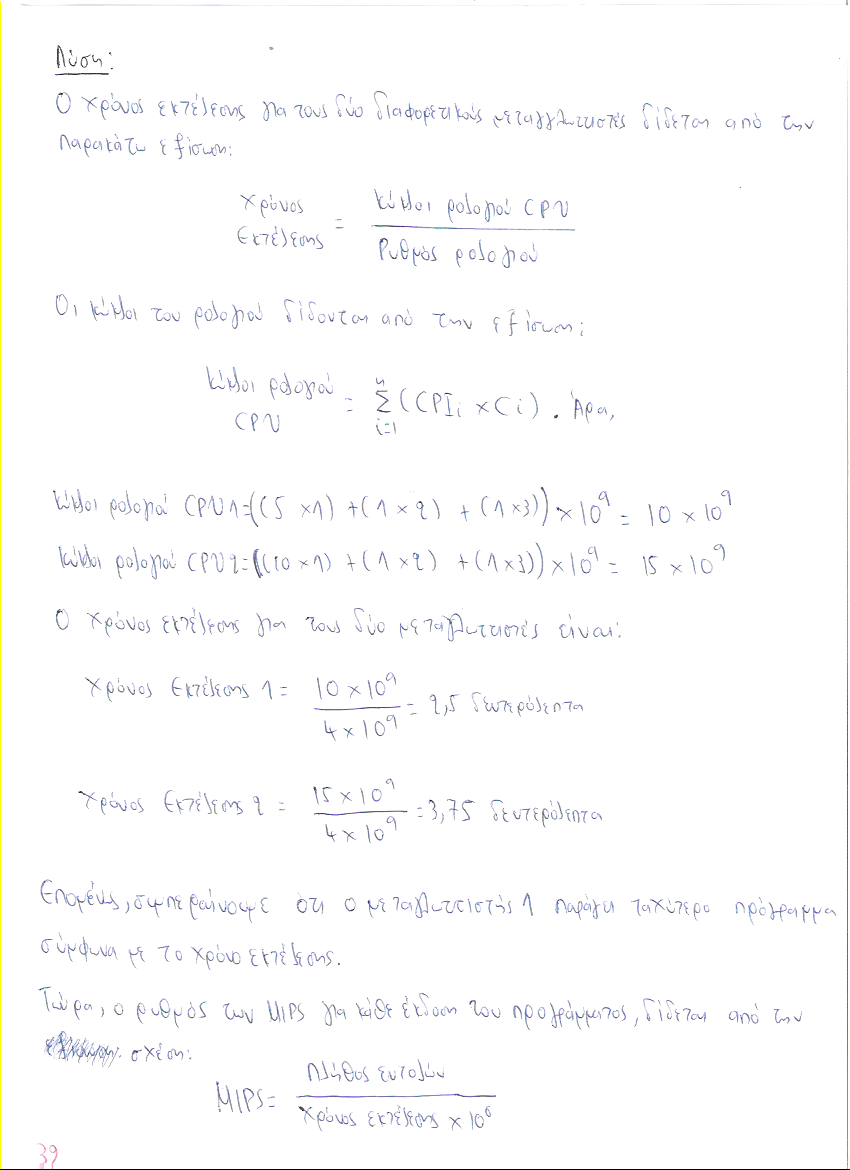 Λύση:
Ο χρόνος εκτέλεσης για τους δύο διαφορετικούς μεταγγλωττιστές δίδεται από την
παρακάτω εξίσωση:
Χρόνος Εκτέλεσης = Κύκλοι ρολογιού CPU / Ρυθμός ρολογιού
Οι κύκλοι του ρολογιού δίδονται από την εξίσωση:
Κύκλοι ρολογιού CPU = n Σ i=1 (CPIi × Ci). Άρα,
Κύκλοι ρολογιού CPU1=((5 ×1) +(1 × 2) + (1 ×3)) × 10^9 = 10 × 10^9
Κύκλοι ρολογιού CPU2=((10 ×1) +(1 ×2) +(1×3))×10^9 = 15 ×10^9
Ο χρόνος εκτέλεσης για τους δύο μεταγλωττιστές είναι:
Χρόνος Εκτέλεσης 1 = 10 ×10^9 / 4 ×10^9 = 2,5 δευτερόλεπτα
Χρόνος Εκτέλεσης 2 = 15 ×10^9 / 4 × 10^9 =3,75 δευτερόλεπτα
Επομένως, συμπεραίνουμε ότι ο μεταγλωττιστής 1 παράγει ταχύτερο πρόγραμμα
σύμφωνα με το χρόνο εκτέλεσης.
Τώρα, ο ρυθμός των MIPS για κάθε έκδοση του προγράμματος, δίδεται από την
σχέση:
MIPS= Πλήθος εντολών / Χρόνος εκτέλεσης × 10^6
39